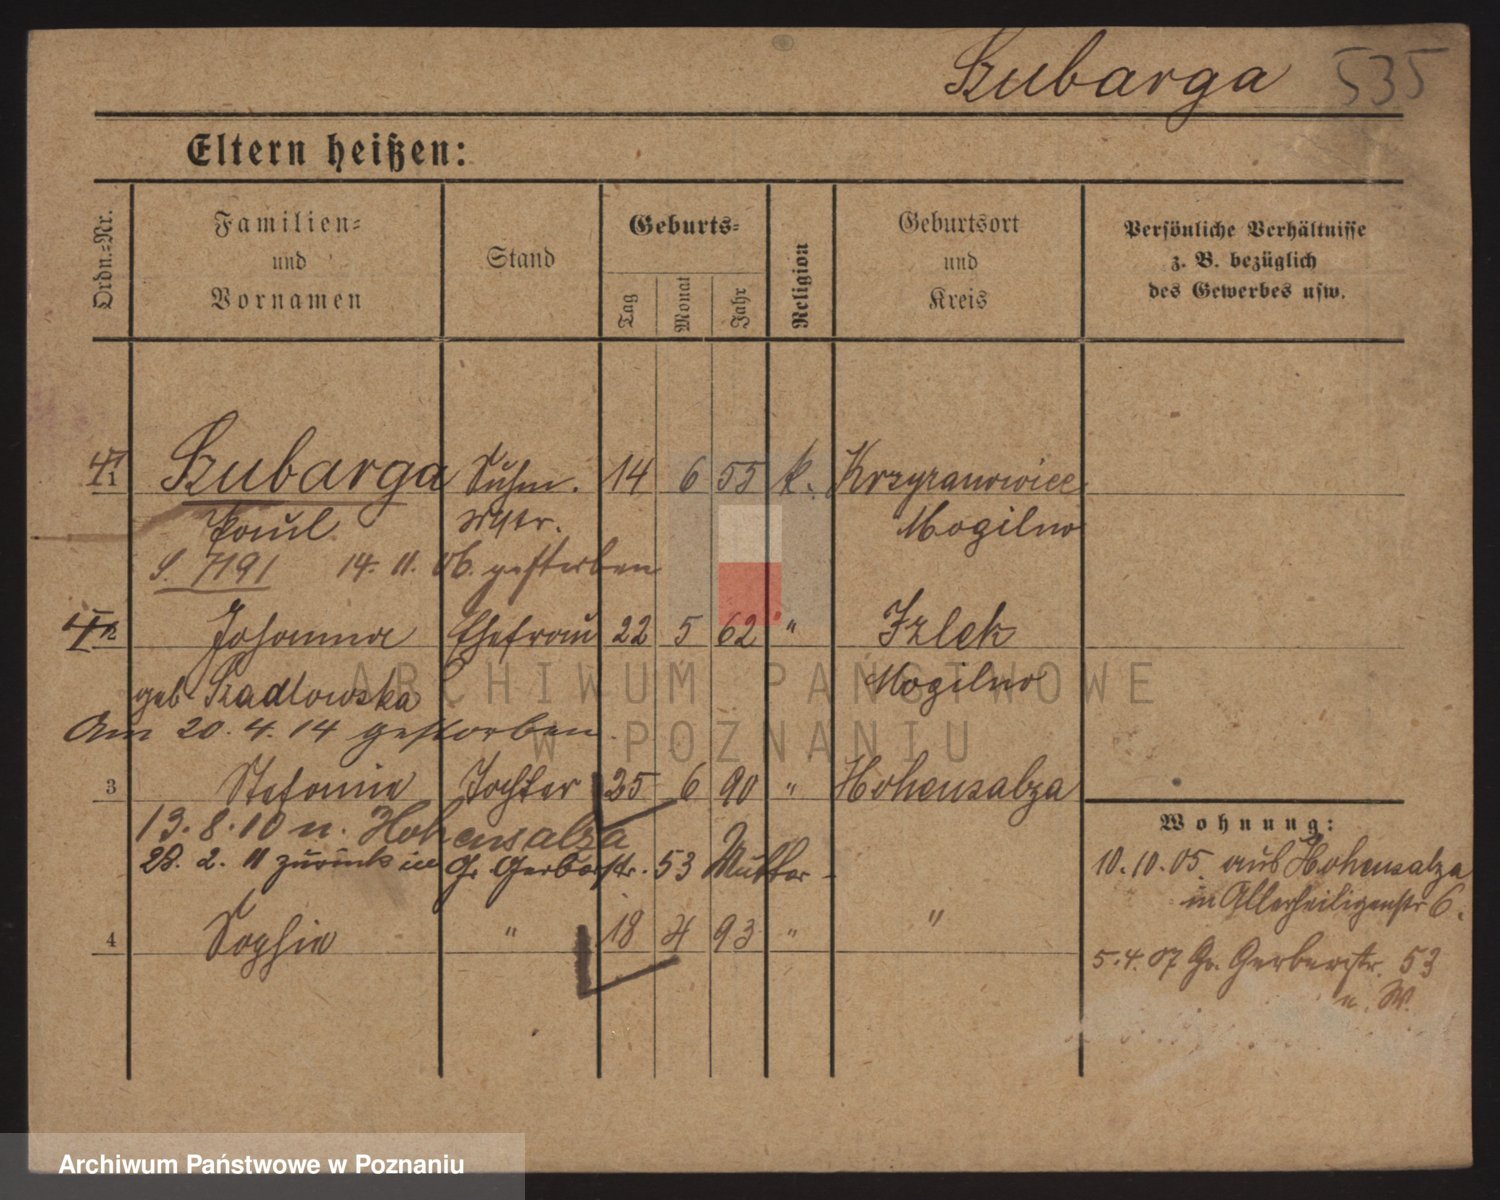 Szubarga 535
Eltern heißen:
Ordn.=Nr.
Familien=
und
Vornamen
Stand
Geburts=
Tag
Monat
Jahr
Religion
Geburtsort
und
Kreis
Persönliche Verhältnisse
z. B. bezüglich
des Gewerbes usw.
1 Szubarga Schm. 14 6 55 k. Krzyzanowice
Paul Mstr. Mogilno
S. 7191 14. 11. 06. gestorben
2 Johanna Ehefrau 22 5 62 " Izlek
geb Szadlowska Mogilno
Am 20. 4. 14 gestorben.
3 Stefanie Tochter 25 6 90 " Hohensalza
13. 8. 10 n. Hohensalza
28. 2. 11 zurück in Gr Gerberstr. 53 Mutter
4 Sophie " 18 4 93 " "
Wohnung:
10. 10. 05. aus Hohensalza
in Allerheiligenstr 6.
5. 4. 07 Gr. Gerberstr. 53
n. W.
ARCHIWUM PAŃSTWOWE
W POZNANIU
Archiwum Państwowe w Poznaniu